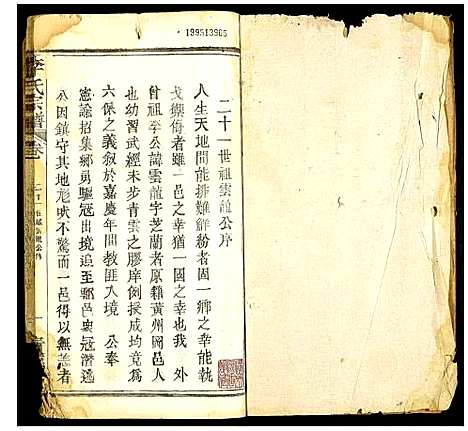 199513965
二十一世祖雲龍公序
人生天地間能排難解紛者固一鄉之幸能執
戈禦侮者雖一邑之幸猶一國之幸也我 外
曾祖李公諱雲龍字芝蘭者原籍黃州岡邑人
也幼習武經未步青雲之膠庠例授成均竟為
六保之義敘於嘉慶年間教匪入境 公奉
憲諭招集鄉勇驅冦出境追至鄰邑衆冦潛逃
公因鎮守其地尨吠不驚而一邑得以無恙者
李氏宗譜 卷